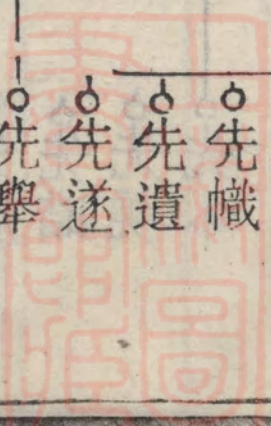 先幟
先遺
先遂
先舉